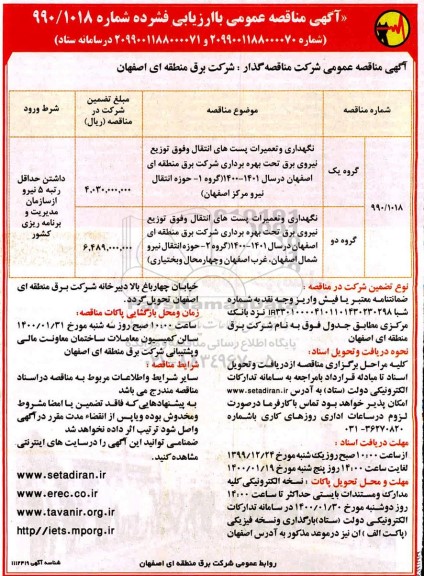 «آگهی مناقصه عمومی باارزیابی فشرده شماره ۹۹۰/۱۰۱۸
(شماره ۲۰۹۹۰۰۱۱۸۸۰۰۰۰۷۰ و ۲۰۹۹۰۰۱۱۸۸۰۰۰۰۷۱ درسامانه ستاد)
آگهی مناقصه عمومی شرکت مناقصه گذار : شرکت برق منطقه ای اصفهان
شماره مناقصه
موضوع مناقصه
مبلغ تضمین شرکت در مناقصه (ریال)
شرط ورود
۹۹۰/۱۰۱۸
گروه یک
نگهداری وتعمیرات پست های انتقال وفوق توزیع
نیروی برق تحت بهره برداری شرکت برق منطقه ای
اصفهان درسال ۱۴۰۱-۱۴۰۰(گروه ۱- حوزه انتقال
نیرو مرکز اصفهان)
۴،۰۳۰،۰۰۰،۰۰۰
گروه دو
نگهداری وتعمیرات پست های انتقال وفوق توزیع
نیروی برق تحت بهره برداری شرکت برق منطقه ای
اصفهان درسال ۱۴۰۱-۱۴۰۰(گروه ۲- حوزه انتقال نیرو
شمال اصفهان، غرب اصفهان وچهارمحال وبختیاری)
۶،۴۸۹،۰۰۰،۰۰۰
داشتن حداقل
رتبه ۵ نیرو
ازسازمان
مدیریت و
برنامه ریزی
کشور
نوع تضمین شرکت در مناقصه :
ضمانتنامه معتبر یا فیش واریز وجه نقد به شماره
شبا
نزد بانک
مرکزی مطابق جدول فوق به نام شرکت برق
منطقه ای اصفهان
نحوه دریافت وتحویل اسناد:
کلیه مراحل برگزاری مناقصه ازدریافت وتحویل
اسناد تا مبادله قرارداد بامراجعه به سامانه تدارکات
الکترونیکی دولت (ستاد) به آدرس www.setadiran.ir
امکان پذیر خواهد بود تماس با کارفرما درصورت
لزوم درساعات اداری روزهای کاری باشماره
۰۳۱-۳۶۲۷۰۸۲۰
مهلت دریافت اسناد :
ازساعت ۱۰:۰۰ صبح روز یک شنبه مورخ ۱۳۹۹/۱۲/۲۴
لغایت ساعت ۱۴:۰۰ روز پنج شنبه مورخ ۱۴۰۰/۰۱/۱۹
مهلت و محل تحویل پاکات : نسخه الکترونیکی کلیه
مدارک ومستندات بایستی حداکثر تا ساعت ۱۴:۰۰
روز دوشنبه مورخ ۱۴۰۰/۰۱/۳۰ در سامانه تدارکات
الکترونیکی دولت (ستاد)بارگذاری ونسخه فیزیکی
(پاکت الف )آن نیز درموعد مذکور به آدرس اصفهان
خیابان چهارباغ بالا دبیرخانه شرکت برق منطقه ای
اصفهان تحویل گردد.
زمان ومحل بازگشایی پاکات مناقصه :
ساعت ۱۰:۰۰ صبح روز سه شنبه مورخ ۱۴۰۰/۰۱/۳۱
سالن کمیسیون معاملات ساختمان معاونت مالی
وپشتیبانی شرکت برق منطقه ای اصفهان
شرایط مناقصه :
سایر شرایط واطلاعات مربوط به مناقصه دراسناد
مناقصه مندرج می باشد
به پیشنهادهایی که فاقد تضمین یا امضا مشروط
ومخدوش بوده ویاپس از انقضاء مدت مقرر درآگهی
واصل شود ترتیب اثر داده نخواهد شد
ضمنامی توانید این آگهی را درسایت های اینترنتی
مشاهده کنید.
www.setadiran.ir
www.erec.co.ir
www.tavanir.org.ir
http//iets.mporg.ir
روابط عمومی شرکت برق منطقه ای اصفهان
شناسه آگهی ۱۱۱۲۳۱۹